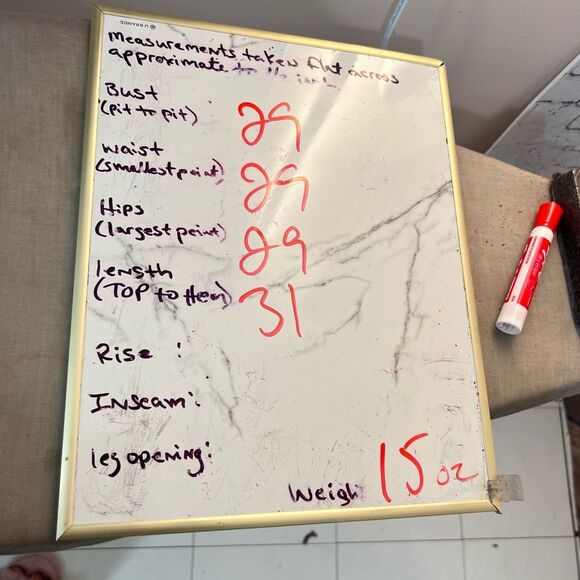 U BRANDS
Measurements taken flat across
approximate to
Bust
(pit to pit) 29
waist
(smallest point) 29
Hips
(largest point) 29
length
(TOP to Hem) 31
Rise :
Inseam:
leg opening:
Weigh 15 oz